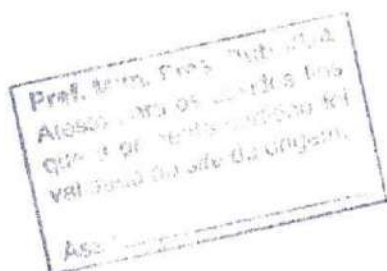 Pref. Mun. Pres.
Atesto para os devidos fins
que a presente certidão foi
validada no site de origem.
Ass